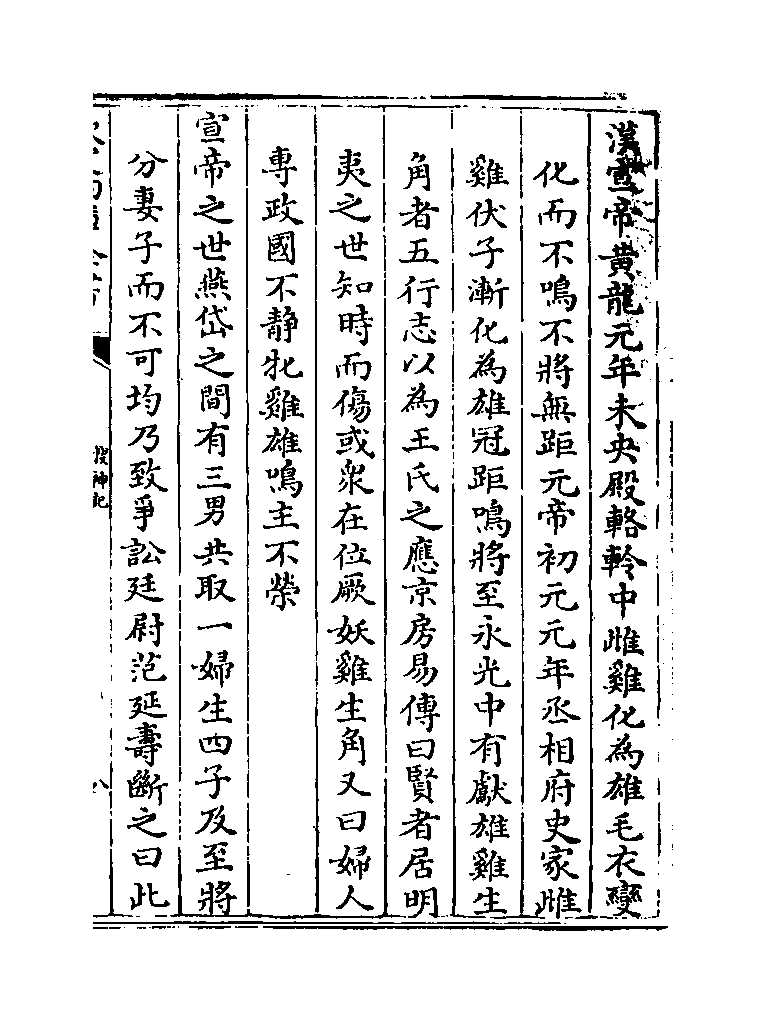 漢宣帝黃龍元年未央殿輅軨中雌雞化為雄毛衣變
化而不鳴不將無距元帝初元元年丞相府史家雌
雞伏子漸化為雄冠距鳴將至永光中有獻雄雞生
角者五行志以為王氏之應京房易傳曰賢者居明
夷之世知時而傷或衆在位厥妖雞生角又曰婦人
專政國不静牝雞雄鳴主不榮
宣帝之世燕岱之間有三男共取一婦生四子及至將
分妻子而不可均乃致爭訟廷尉范延壽斷之曰此
搜神記
八